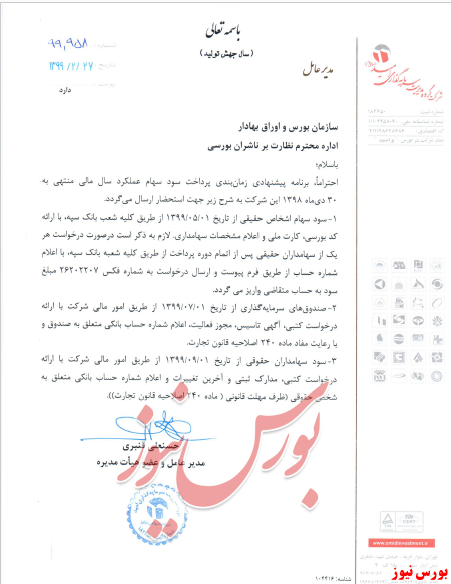 باسمه تعالی
(سال جهش تولید)
مدیر عامل
شماره: ۹۹,۹۵۸
تاریخ: ۱۳۹۹/۲/۲۷
دارد
سازمان بورس و اوراق بهادار
اداره محترم نظارت بر ناشران بورسی
باسلام؛
احتراماً، برنامه پیشنهادی زمان‌بندی پرداخت سود سهام عملکرد سال مالی منتهی به
۳۰ دی‌ماه ۱۳۹۸ این شرکت به شرح زیر جهت استحضار ارسال می‌گردد.
۱-سود سهام اشخاص حقیقی از تاریخ ۱۳۹۹/۰۵/۰۱ از طریق کلیه شعب بانک سپه، با ارائه
کد بورسی، کارت ملی و اعلام مشخصات سهامداری. لازم به ذکر است درصورت درخواست هر
یک از سهامداران حقیقی پس از اتمام دوره پرداخت از طریق کلیه شعب بانک سپه، با اعلام
شماره حساب از طریق فرم پیوست و ارسال درخواست به شماره فکس ۲۶۲۰۲۲۰۷ مبلغ
سود به حساب متقاضی واریز می گردد.
۲-صندوق‌های سرمایه‌گذاری از تاریخ ۱۳۹۹/۰۷/۰۱ از طریق امور مالی شرکت با ارائه
درخواست کتبی، آگهی تاسیس، مجوز فعالیت، اعلام شماره حساب بانکی متعلق به صندوق و
با رعایت مفاد ماده ۲۴۰ اصلاحیه قانون تجارت.
۳-سود سهامداران حقوقی از تاریخ ۱۳۹۹/۰۹/۰۱ از طریق امور مالی شرکت با ارائه
درخواست کتبی، مدارک ثبتی و آخرین تغییرات و اعلام شماره حساب بانکی متعلق به
شخص حقوقی (ظرف مهلت قانونی ( ماده ۲۴۰ اصلاحیه قانون تجارت)).
حسنعلی قنبری
مدیر عامل و عضو هیأت مدیره
بورس نیوز
www.omidinvestment.ir
شناسه: ۱۰۲۴۱۶
بورس نیوز